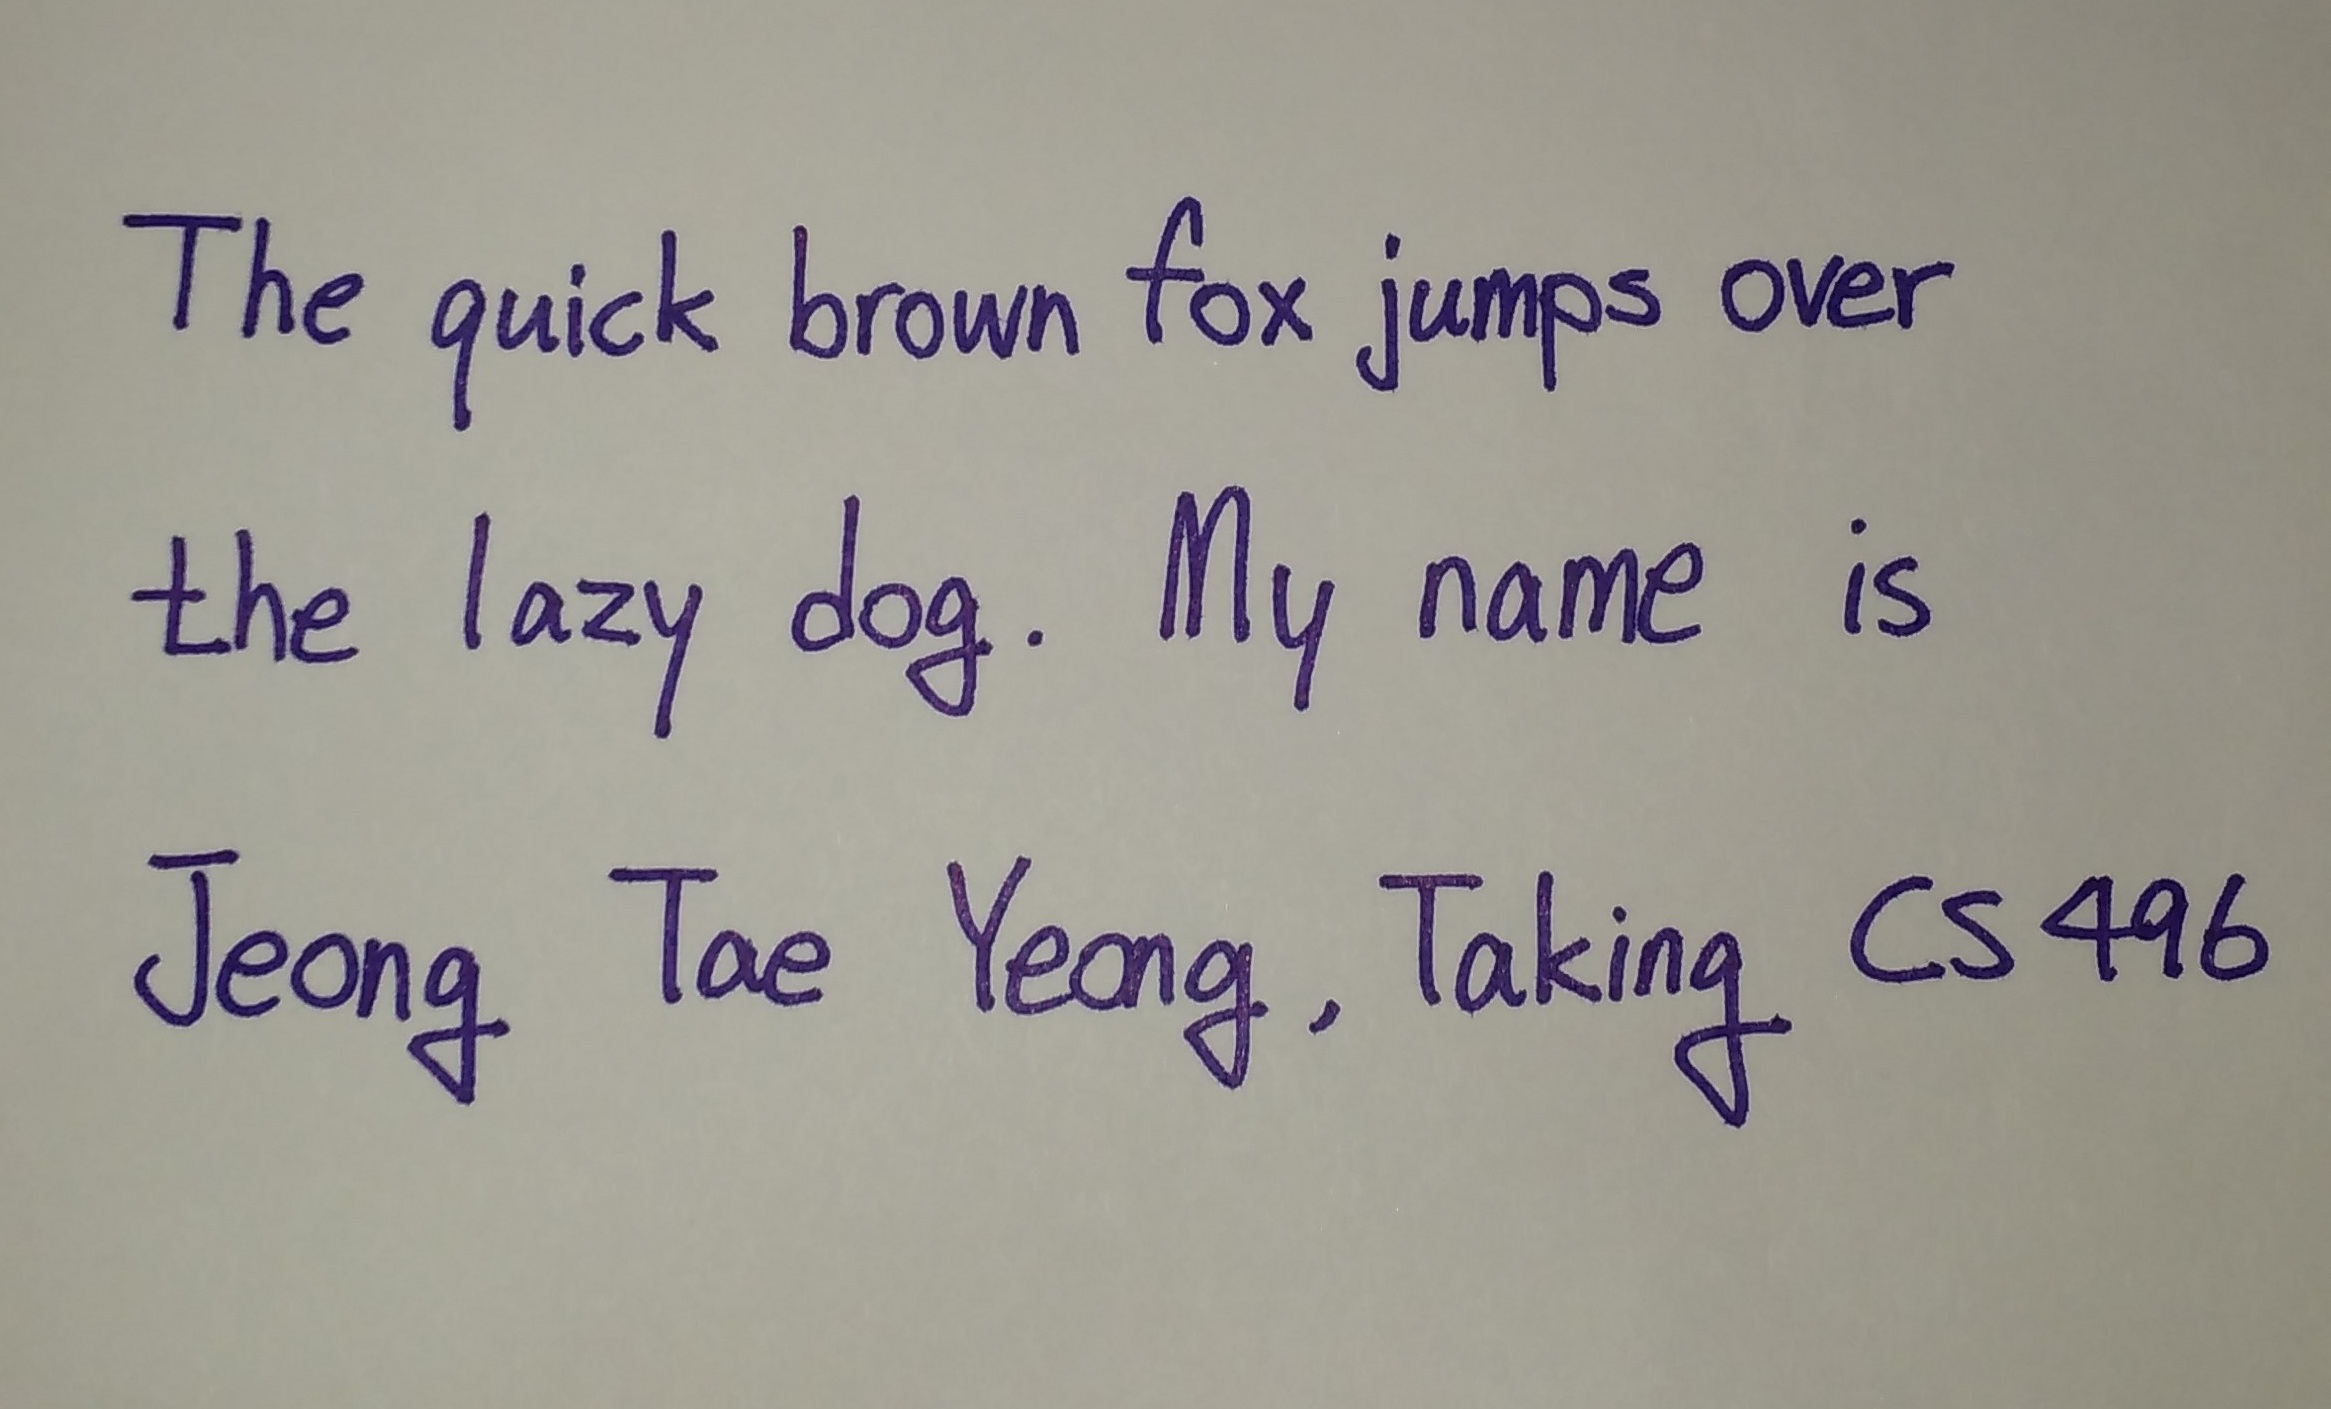 The quick brown fox jumps over
the lazy dog. My name is
Jeong Tae Yeong, Taking CS496